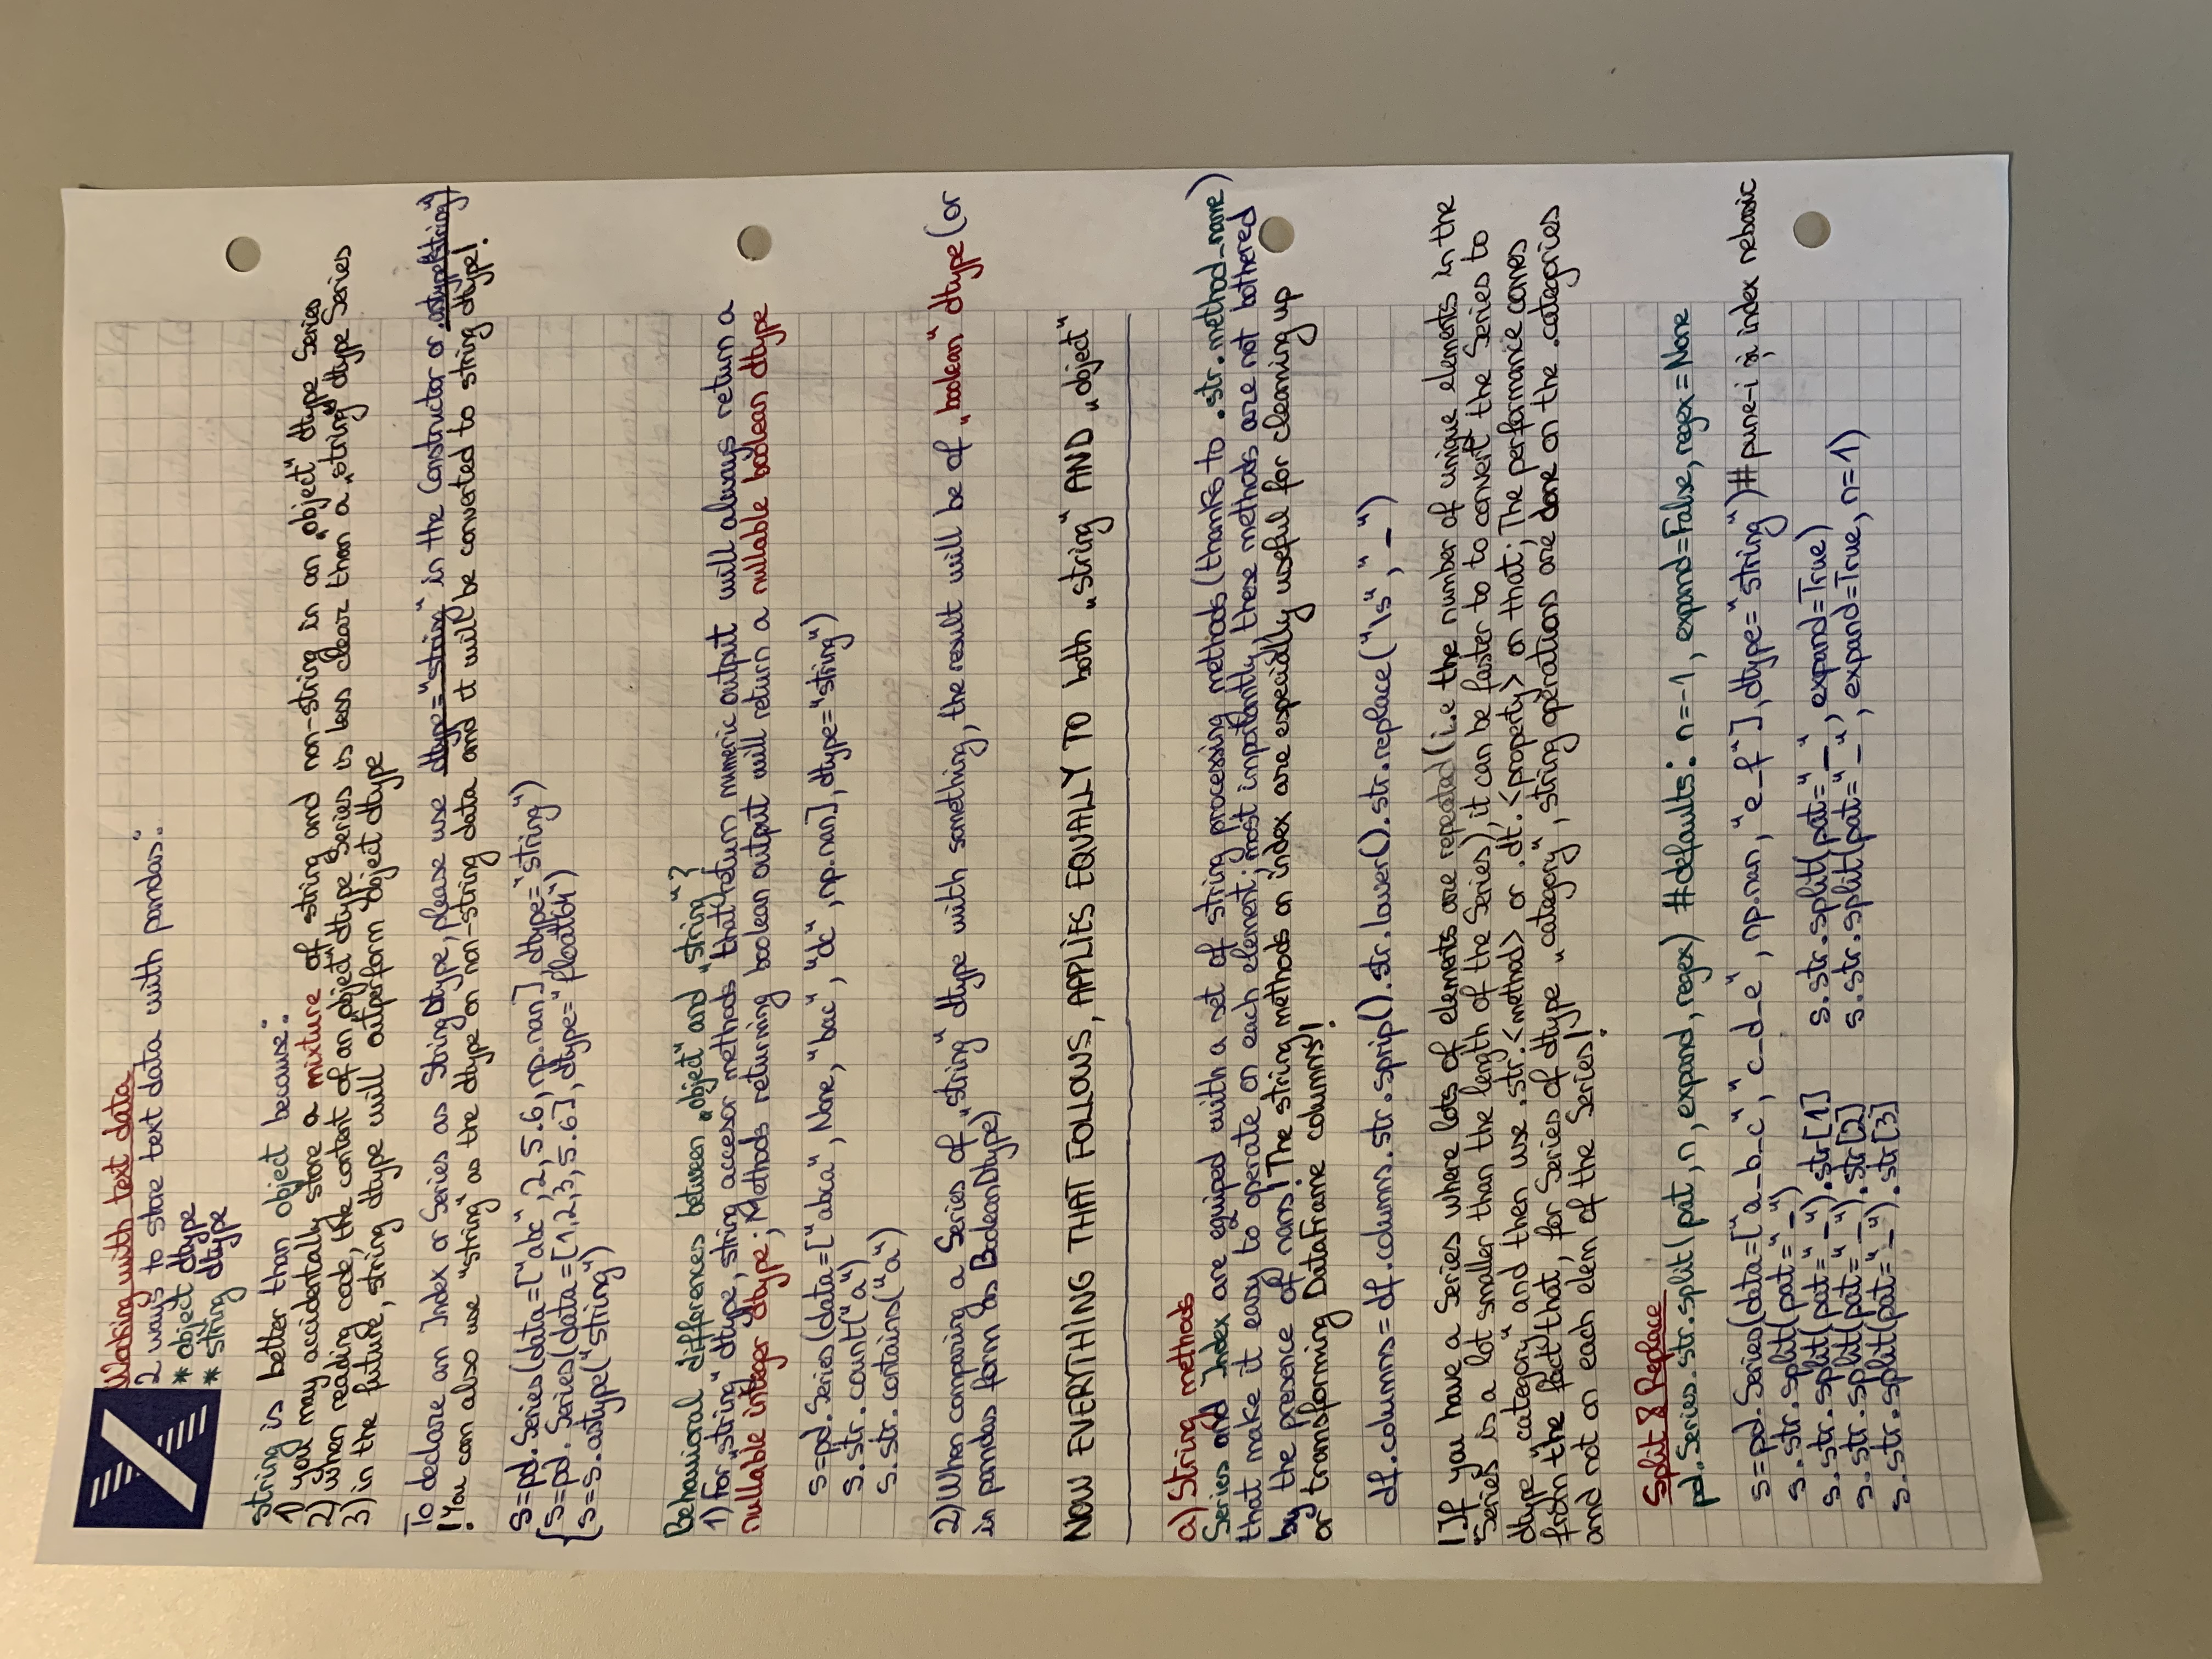 Working with text data
2 ways to store text data with pandas:
* object dtype
* string dtype
string is better than object because:
1) you may accidentally store a mixture of string and non-string in an „object" dtype Series
2) when reading code, the content of an „object" dtype Series is less clear than a „string" dtype Series
3) in the future, string dtype will outperform object dtype
To declare an Index or Series as StringDtype, please use dtype="string" in the Constructor or .astype("string")
! You can also use "string" as the dtype on non-string data and it will be converted to string dtype!
s=pd.Series(data=["abc", 2, 5.6, np.nan], dtype="string")
s=pd.Series(data=[1,2,3,5.6], dtype="float64")
s=s.astype("string")
Behavioral differences between „object" and "string"?
1) For „string" dtype, string accessor methods that return numeric output will always return a
nullable integer dtype; Methods returning boolean output will return a nullable boolean dtype
s=pd.Series(data=["abca", None, "bac", "dc", np.nan], dtype="string")
s.str.count("a")
s.str.contains("a")
2) When comparing a Series of „string" dtype with something, the result will be of „boolean" dtype (or
in pandas form as BooleanDtype)
NOW EVERYTHING THAT FOLLOWS, APPLIES EQUALLY TO both „string" AND „object"
a) String methods
Series and Index are equiped with a set of string processing methods (thanks to .str.method_name)
that make it easy to operate on each element; most inpotantly these methods are not bothered
by the presence of nans! The string methods on index are especially useful for cleaning up
or transforming DataFrame columns!
df.columns=df.columns.str.sprip().str.lower().str.replace("\s", "_")
! If you have a Series where lots of elements are repeated (i.e the number of unique elements in the
Series is a lot smaller than the length of the Series), it can be faster to to convert the Series to
dtype „category" and then use .str.<method> or .dt.<property> on that; The performance comes
from the fact that, for Series of dtype „category", string operations are done on the .categories
and not on each elem of the Series!
Split & Replace
pd.Series.str.split(pat, n, expand, regex) #defaults: n=-1, expand=False, regex=None
s=pd.Series(data=["a_b_c", "c_d_e", np.nan, "e_f"], dtype="string") # pune-i și index nebazic
s.str.split(pat="_")
s.str.split(pat="_").str[1] s.str.split(pat="_", expand=True)
s.str.split(pat="_").str[2] s.str.split(pat="_", expand=True, n=1)
s.str.split(pat="_").str[3]